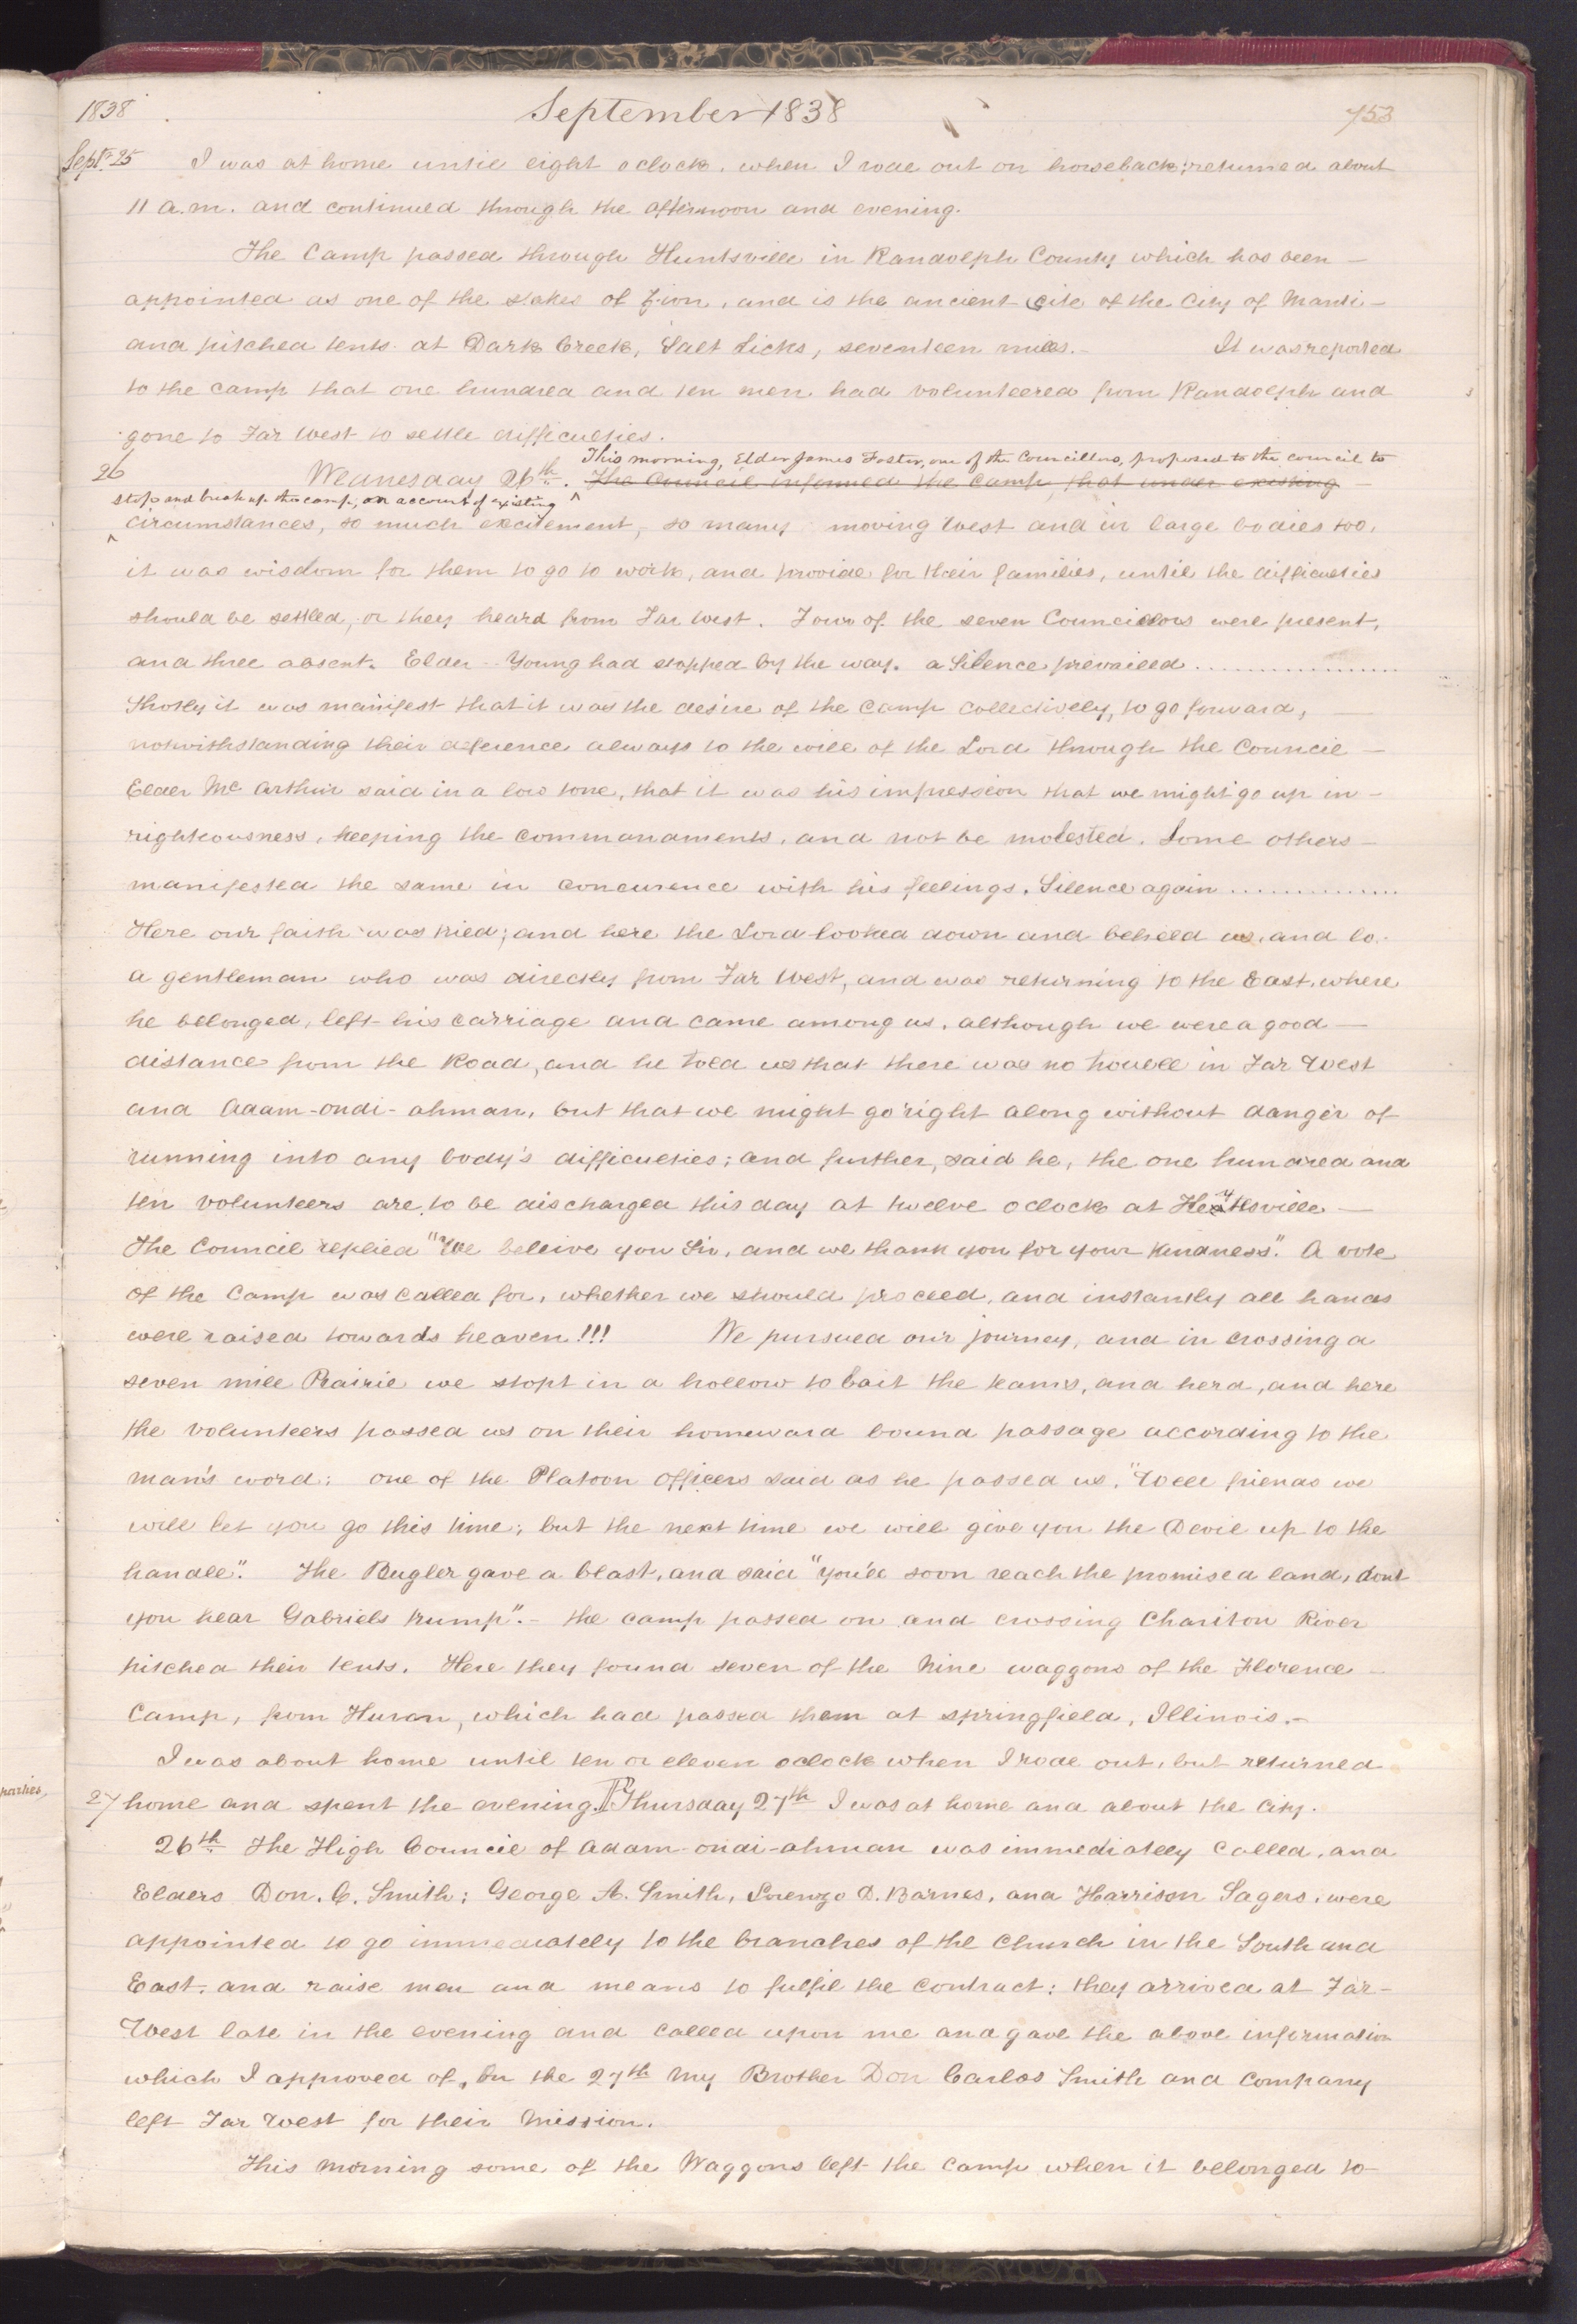 1838 September 1838 753
Sept. 25 I was at home until eight o clock, when I rode out on horseback; returned about
11 a.m. and continued through the afternoon and evening.
The Camp passed through Huntsville in Randolph County which has been —
appointed as one of the stakes of Zion, and is the ancient site of the City of Manti —
and pitched tents at Dark Creek, Salt Licks, seventeen miles. — It was reported
to the camp that one hundred and ten men had volunteered from Randolph and
gone to Far West to settle difficulties.
This morning, Elder James Foster, one of the Councillors, proposed to the council to
26 Wednesday 26th. ^ The Council informed the camp, that under existing —
stop and break up the camp, on account of existing
^ circumstances, so much excitement, so many moving west and in large bodies too,
it was wisdom for them to go to work, and provide for their families, until the difficulties
should be settled, or they heard from Far West. Four of the seven Councillors were present,
and three absent. Elder Young had stopped by the way. a Silence prevailed ..................
Shortly it was manifest that it was the desire of the Camp collectively, to go forward, —
notwithstanding their deference always to the will of the Lord through the Council —
Elder Mc Arthur said in a low tone, that it was his impression that we might go up in —
righteousness, keeping the commandments, and not be molested. Some others —
manifested the same in concurence with his feelings. Silence again ...............
Here our faith was tried; and here the Lord looked down and beheld us, and lo.
a gentleman who was directly from Far West, and was returning to the East, where
he belonged, left his carriage and came among us, although we were a good —
distance from the Road, and he told us that there was no trouble in Far West
and Adam-ondi-ahman, but that we might go right along without danger of
running into any body's difficulties; and further, said he, the one hundred and
ten volunteers are to be discharged this day at twelve o clock at Keytesville —
The Council replied "We beleive you Sir, and we thank you for your kindness." A vote
of the Camp was called for, whether we should proceed, and instantly all hands
were raised towards heaven!!! We pursued our journey, and in crossing a
seven mile Prairie we stopt in a hollow to bait the teams, and herd, and here
the volunteers passed us on their homeward bound passage according to the
man's word: one of the Platoon officers said as he passed us, "Well friends we
will let you go this time; but the next time we will give you the Devil up to the
handle". The Bugler gave a blast, and said "you'll soon reach the promised land, dont
you hear Gabriels trump". — the camp passed on and crossing Chariton River
pitched their tents. Here they found seven of the Nine waggons of the Florence —
Camp, from Huron, which had passed them at Springfield, Illinois. —
I was about home until ten or eleven oclock when I rode out, but returned
27 home and spent the evening. Thursday 27th I was at home and about the city.
26th The High Council of Adam-ondi-ahman was immediately called, and
Elders Don. C. Smith; George A. Smith, Lorenzo D. Barnes, and Harrison Sagers, were
appointed to go immediately to the branches of the Church in the South and
East, and raise men and means to fulfil the contract: they arrived at Far —
West late in the evening and called upon me and gave the above information
which I approved of, On the 27th My Brother Don Carlos Smith and Company
left Far West for their Mission.
This morning some of the Waggons left the Camp when it belonged to